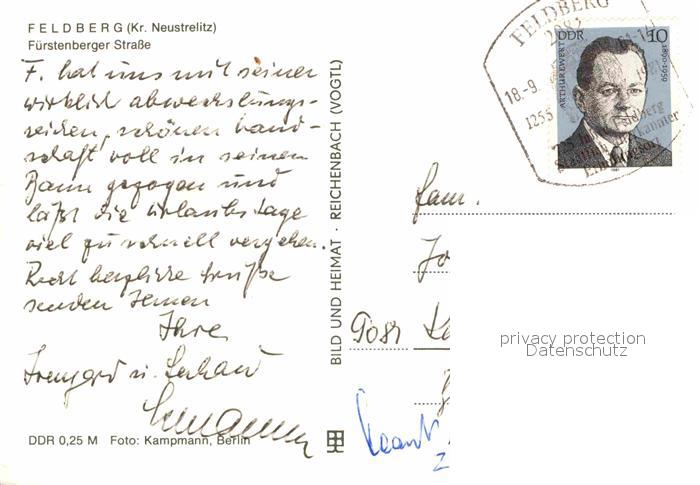 FELDBERG (Kr. Neustrelitz)
Fürstenberger Straße
F. hat uns mit seiner
wirklich abwechslungs-
reichen, schönen Land-
schaft voll in seinen
Bann gezogen und
läßt die Urlaubstage
viel zu schnell vergehen.
Recht herzliche Grüße
senden Ihnen
Ihre
Irmgard u.
DDR 0,25 M Foto: Kampmann, Berlin
BILD UND HEIMAT · REICHENBACH (VOGTL)
FELDBERG
2082
18.-9.
1255
DDR 10
ARTHUR EWERT
1890-1959
Feldberg
staatlich anerkannter
Erholungsort
Fam.
privacy protection
Datenschutz